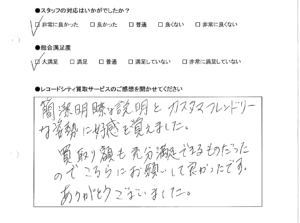 ●スタッフの対応はいかがでしたか?
□非常に良かった □良かった □普通 □良くない □非常に良くない
●総合満足度
□大満足 □満足 □普通 □満足していない □非常に満足していない
●レコードシティ買取サービスのご感想を聞かせてください
簡潔明瞭な説明とカスタマーフレンドリー
な姿勢に好感を覚えました。
買取り額も充分満足できるものだった
のでこちらにお願いして良かったです。
ありがとうございました。